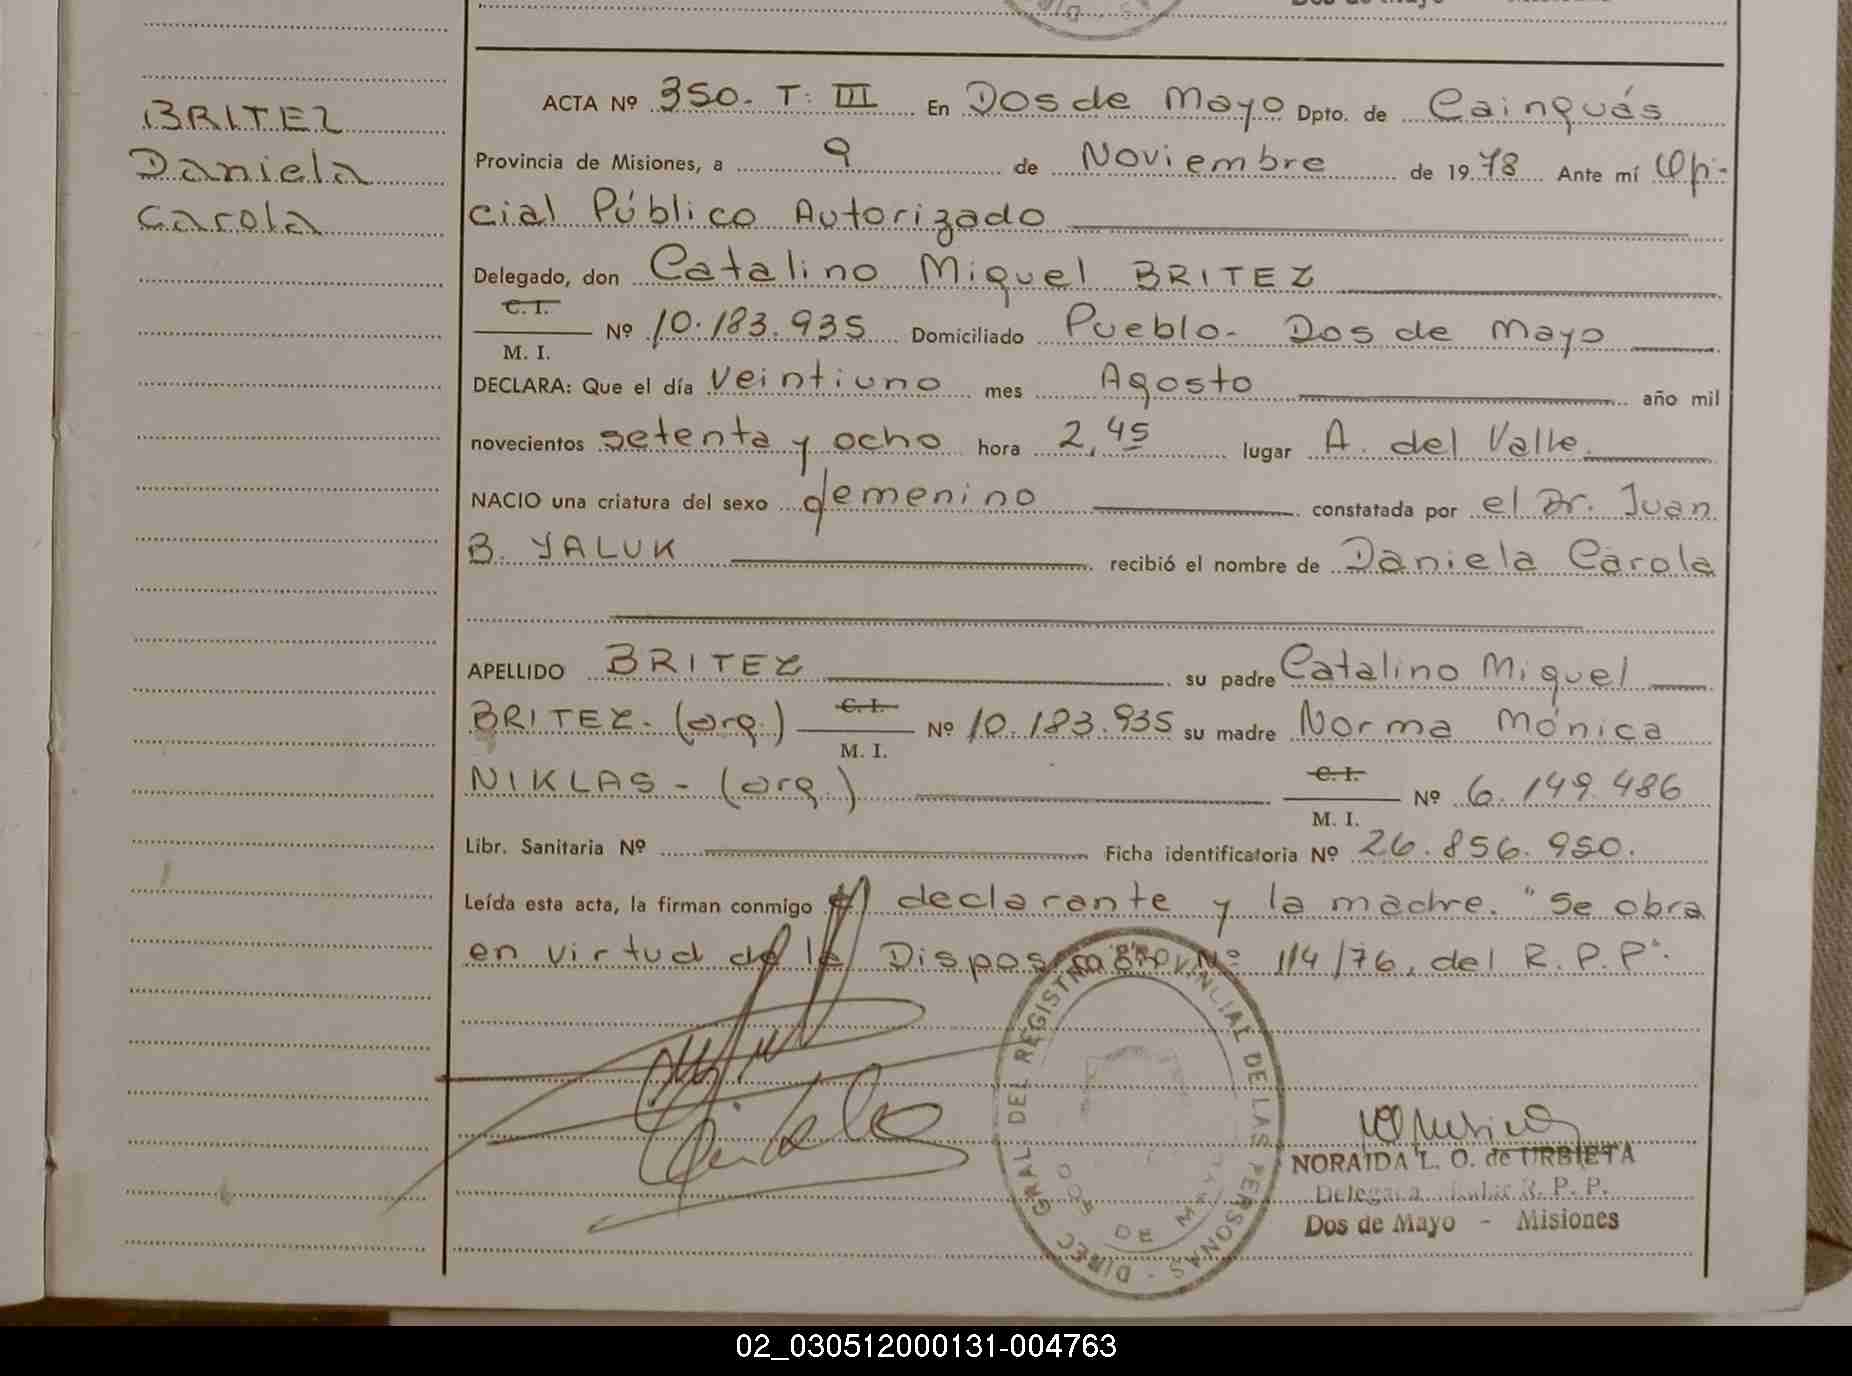 BRITEZ
Daniela
Carola
ACTA Nº 350. T: III En Dos de Mayo Dpto. de Cainguás
Provincia de Misiones, a 9 de Noviembre de 1978 Ante mí Ofi-
cial Público Autorizado
Delegado, don Catalino Miguel BRITEZ
C. I.
M. I. Nº 10.183.935 Domiciliado Pueblo- Dos de Mayo
DECLARA: Que el día veintiuno mes Agosto año mil
novecientos setenta y ocho hora 2,45 lugar A. del Valle.
NACIO una criatura del sexo femenino constatada por el Dr. Juan
B. YALUK recibió el nombre de Daniela Carola
APELLIDO BRITEZ su padre Catalino Miguel
BRITEZ- (arg.) C. I. M. I. Nº 10.183.935 su madre Norma Mónica
NIKLAS - (arg.) C. I. M. I. Nº 6.149.486
Libr. Sanitaria Nº Ficha identificatoria Nº 26.856.950.
Leída esta acta, la firman conmigo el declarante y la madre. "Se obra
en virtud de la Disposición Nº 114/76, del R.P.P".
DIREC. GRAL. DEL REGISTRO PROVINCIAL DE LAS PERSONAS
DOS DE MAYO
NORAIDA L. O. de URBIETA
Delegada Titular R. P. P.
Dos de Mayo - Misiones
02_030512000131-004763